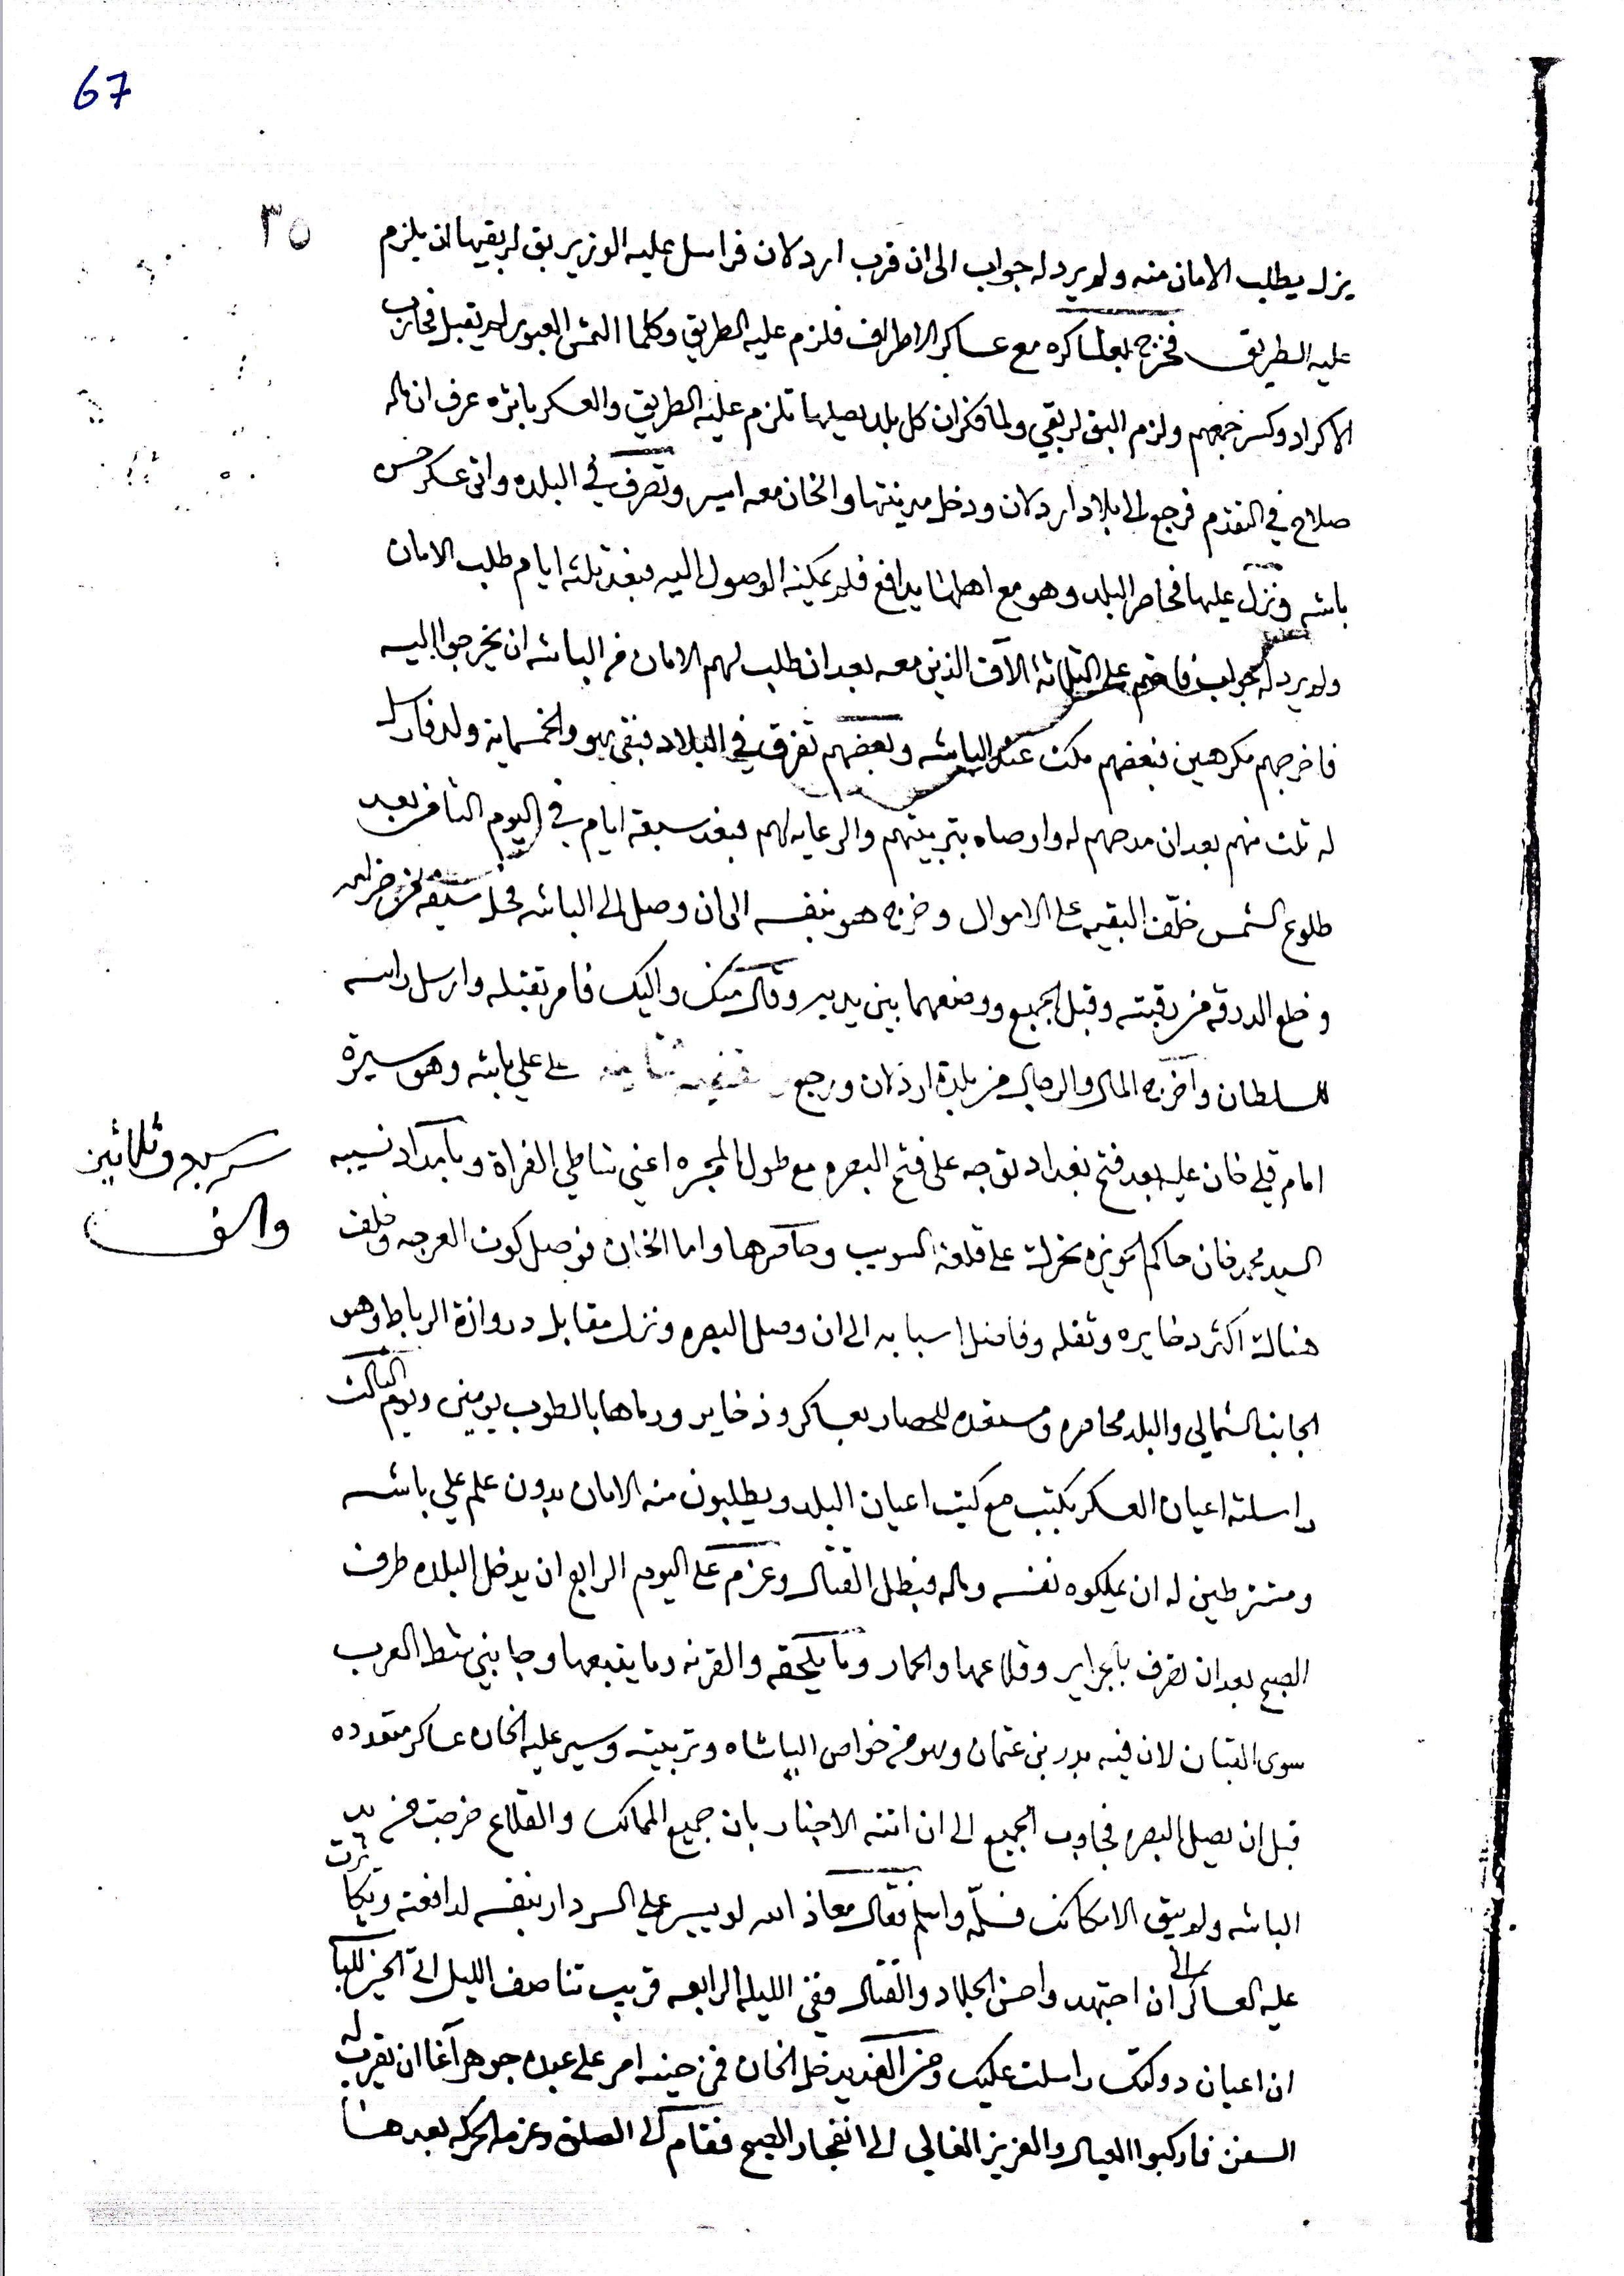 67
٣٥
يزل يطلب الامان منه ولم يرد له جواب الى ان قرب اردلان فراسل عليه الوزير بق لربقيها ان يلزم
عليه الطريق فخرج بعساكره مع عساكر الاطراف فلزم عليه الطريق وكلما التمس العبور لم يقبل فحارب
الاكراد وكسر جمعهم ولزم البق لربقي ولما فكر ان كل بلد يصلها تلزم عليه الطريق والعسكر باثره عرف ان ماله
صلاح في التقدم فرجع الى بلاد اردلان ودخل مدينتها والخان معه اسير وتصرف في البلده واتى عسكر حسن
باشه ونزل عليها فحاصر البلد وهو مع اهلها يدافع فلم يمكنه الوصول اليه فبعد ثلثه ايام طلب الامان
ولم يرد له جواب على الثلاثة الآف الذين معه بعد ان طلب لهم الامان من الباشه ان يخرجوا اليه
فاخرجهم مكرهين فبعضهم مكث عند الباشه وبعضهم تفرق في البلاد فبقى هو والخمسماية ولد فارسل
له ثلث منهم بعد ان مدحهم له واوصاه بتربيتهم والرعايه لهم فبعد سبعة ايام في اليوم الثامن بعد
طلوع الشمس خلّف البقيه على الاموال وخرج هو بنفسه الى ان وصل الى الباشه فحل سيفه
وخلع الدرقه من رقبته وقبل الجميع ووضعهما بين يديه وقال منك واليك فامر بقتله وارسل راسه
للسلطان واخرج المال والرجال من بلدة اردلان ورجع على علي باشه وهو سيرة
امام قلي خان عليه بعد فتح بغداد توجه على فتح البصره مع طول المجره اعني شاطي الفراة وبامداد نسيبه
سنه سبع وثلاثين
والف
السيد محمد خان حاكم الحويزه بحركة على قلعة السويب وحاصرها واما الخان فوصل كوت العرجه وخلف
هنالك اكثر دخايره وثقله وفاضل اسبابه الى ان وصل البصره ونزل مقابل دروازة الرباط وهو
الجانب الشمالي والبلد محاصره ومستعده للحصار بعساكر وذخاير ورماها بالطوب يومين ويوم الثالث
راسلته اعيان العسكر بكتب مع كتب اعيان البلد ويطلبون منه الامان بدون علم علي باشه
ومشترطين له ان يملكوه نفسه وماله فبطل القتال وعزم على اليوم الرابع ان يدخل البلده طرف
الصبح بعد ان تصرف بالجراير وقلاعها والحمار وما يلحقه والقرنه وما يتبعها وجانبي شط العرب
سوى القبان لان فيه بدر بن عثمان وهو من خواص الباشاه وتربيته وسير عليه الخان عساكر متعدده
قبل ان يصل البصره فجاوب الجميع الى ان اتته الاخبار بان جميع الممالك والقلاع خرجت من يد
الباشه ولم يبق الا مكانك فسلّم واسلم فقال معاذ الله لو يسير علي السردار بنفسه لدافعته وتكاثرت
عليه العساكر الى ان اجتهد واحسن الجلاد والقتال ففي الليلة الرابعه قريب تناصف الليل اتى الخبر للباشا
ان اعيان دولتك راسلت عليك ومن الغد يدخل الخان فمن حينه امر على عبده جوهر آغا ان يقرب له
السفن فاركبوا العيال والعزيز الغالي الى انفجار الصبح فقام الى الصلوة وعزم الحركه بعد